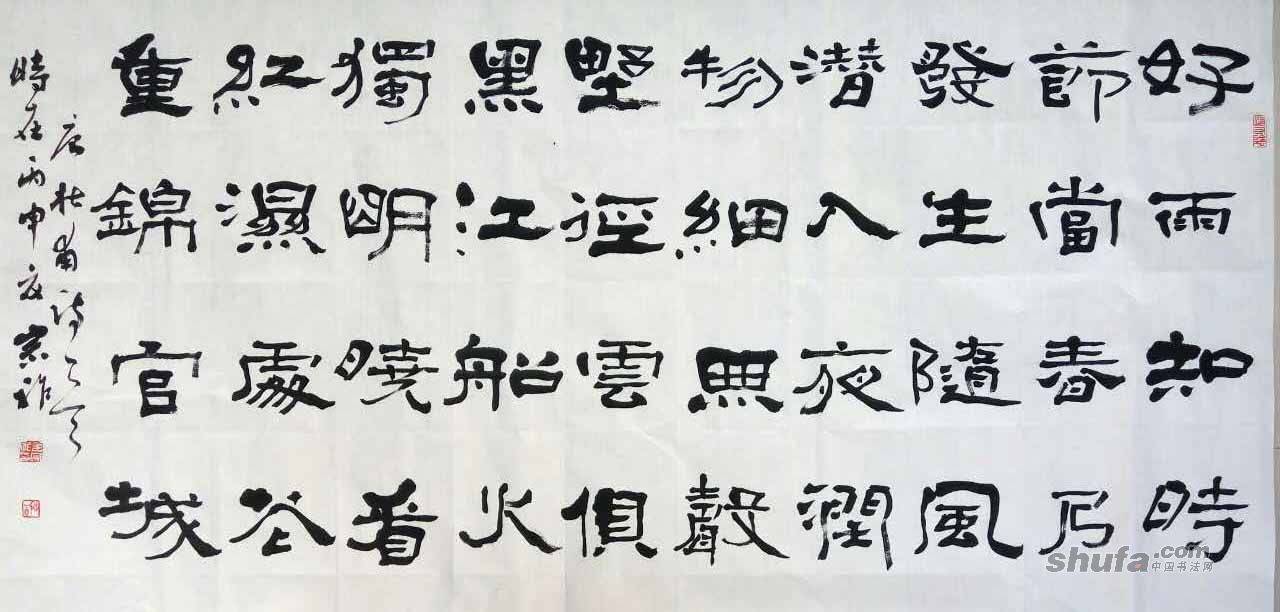 好雨知時
節當春乃
發生隨風
潛入夜潤
物細無聲
野徑雲俱
黑江船火
獨明曉看
紅濕處花
重錦官城
唐杜甫詩
時在丙申夏
shufa.com
中国书法网